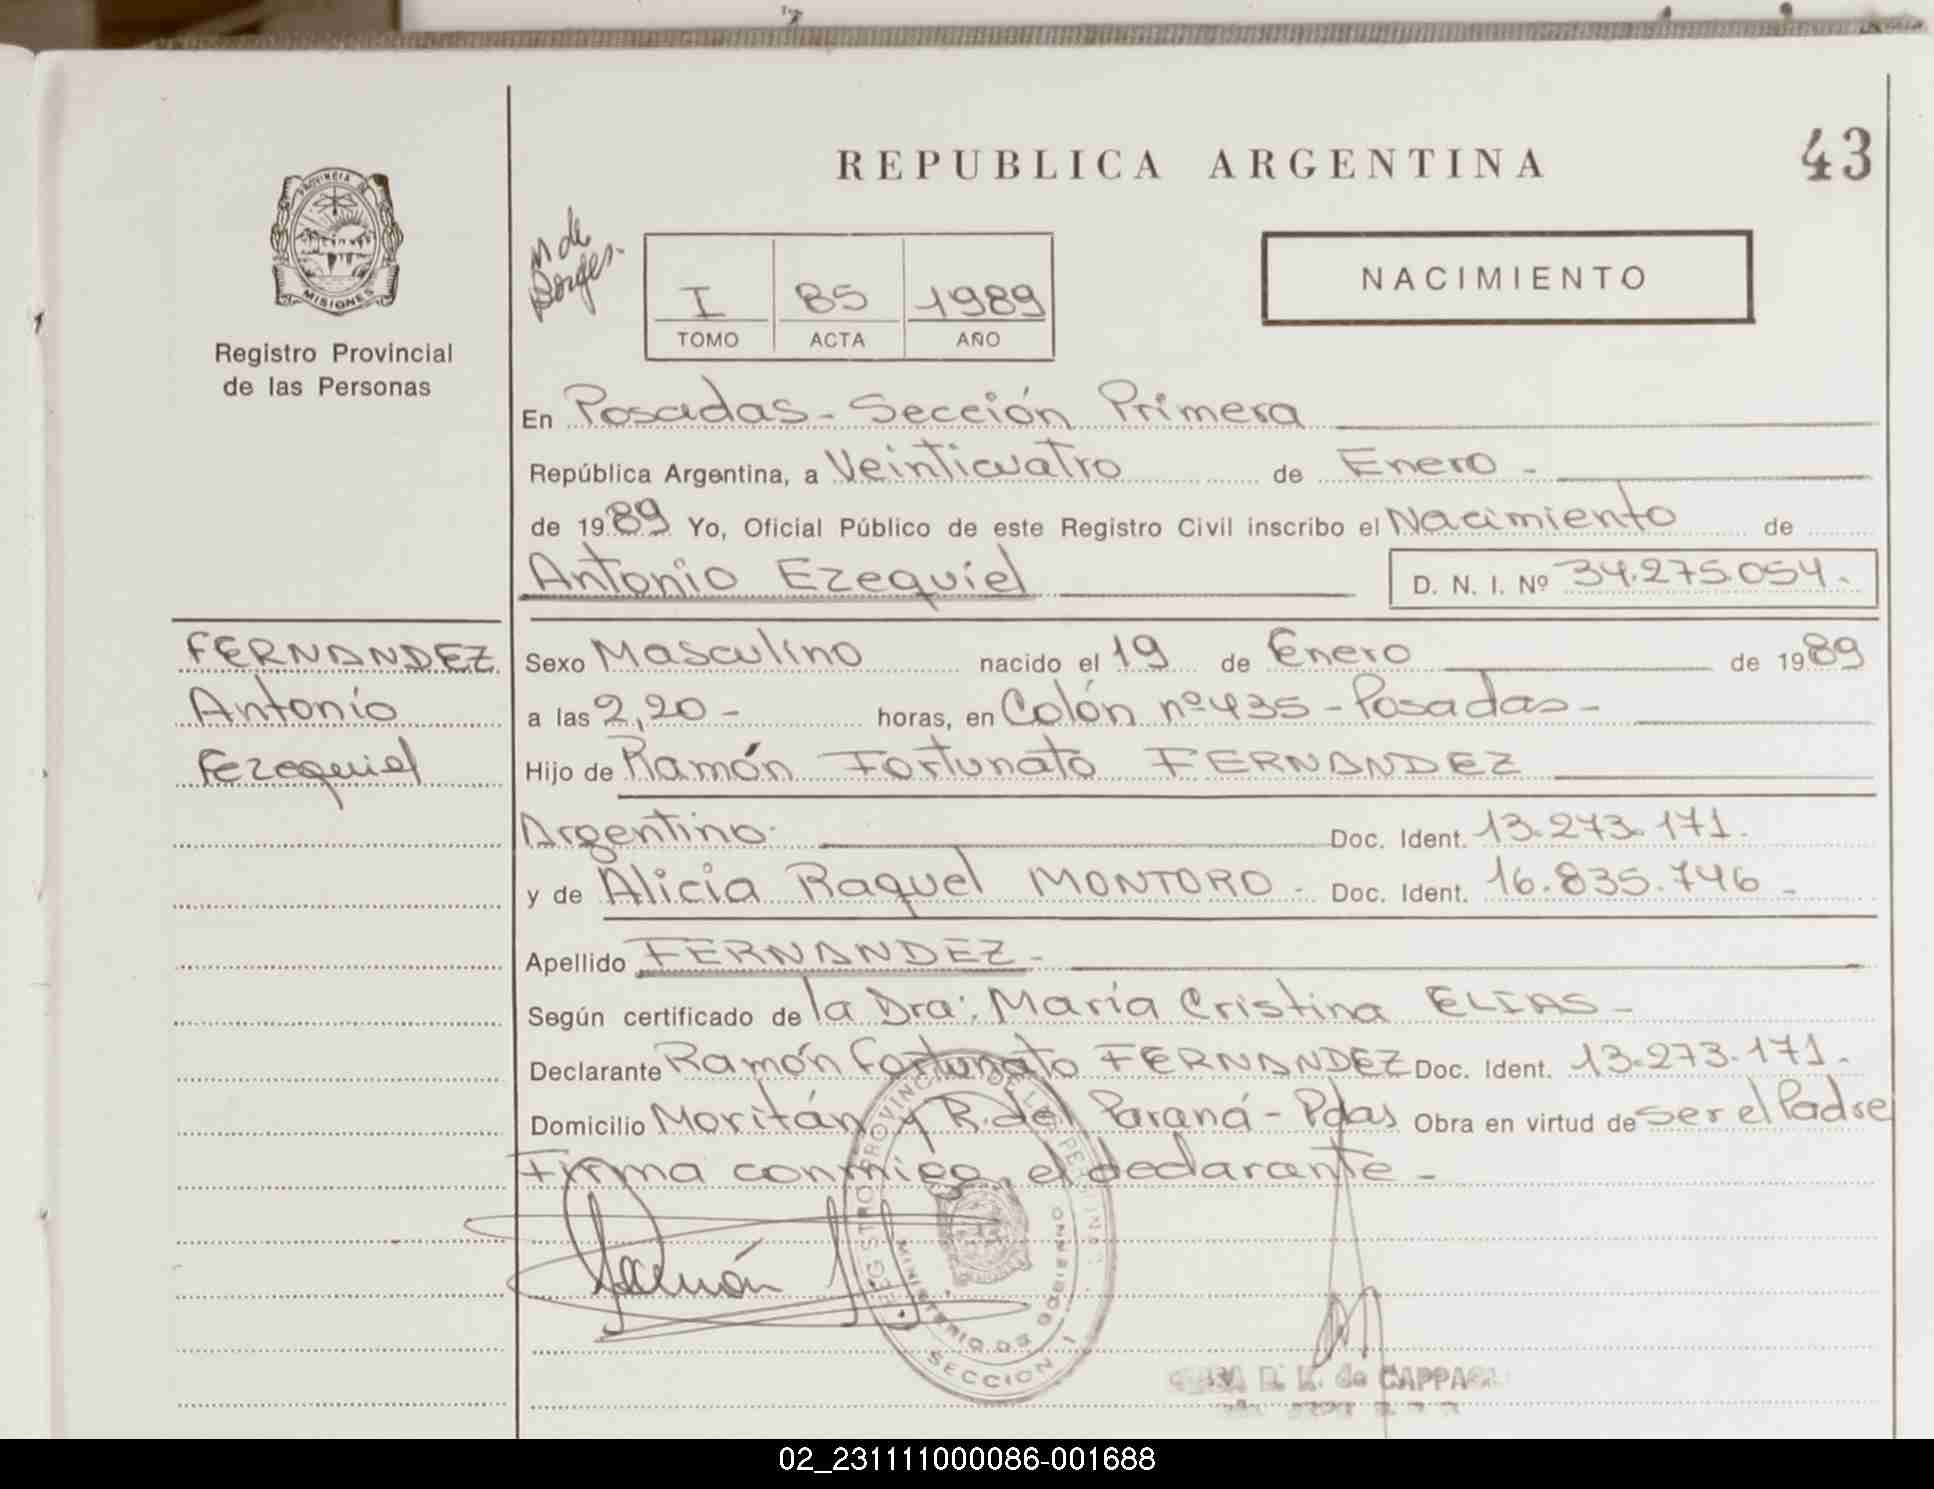 REPUBLICA ARGENTINA
43
PROVINCIA DE
MISIONES
Registro Provincial
de las Personas
M de
Borges.-
I 85 1989
TOMO ACTA AÑO
NACIMIENTO
En Posadas - Sección Primera
República Argentina, a Veinticuatro de Enero -
de 1989 Yo, Oficial Público de este Registro Civil inscribo el Nacimiento de
Antonio Ezequiel D. N. I. Nº 34.275.054.-
FERNANDEZ
Antonio
Ezequiel
Sexo Masculino nacido el 19 de Enero de 1989
a las 2,20 - horas, en Colón nº 435 - Posadas -
Hijo de Ramón Fortunato FERNANDEZ
Argentino. Doc. Ident. 13.273.171.
y de Alicia Raquel MONTORO - Doc. Ident. 16.835.746 -
Apellido FERNANDEZ -
Según certificado de la Dra: María Cristina ELIAS -
Declarante Ramón Fortunato FERNANDEZ Doc. Ident. 13.273.171.
Domicilio Moritán y R. del Paraná - Pdas Obra en virtud de ser el Padre
Firma conmigo, el declarante -
Ramón
REGISTRO PROVINCIAL DE LAS PERSONAS
MINISTERIO DE GOBIERNO
SECCION 1
de CAPPA
02_231111000086-001688